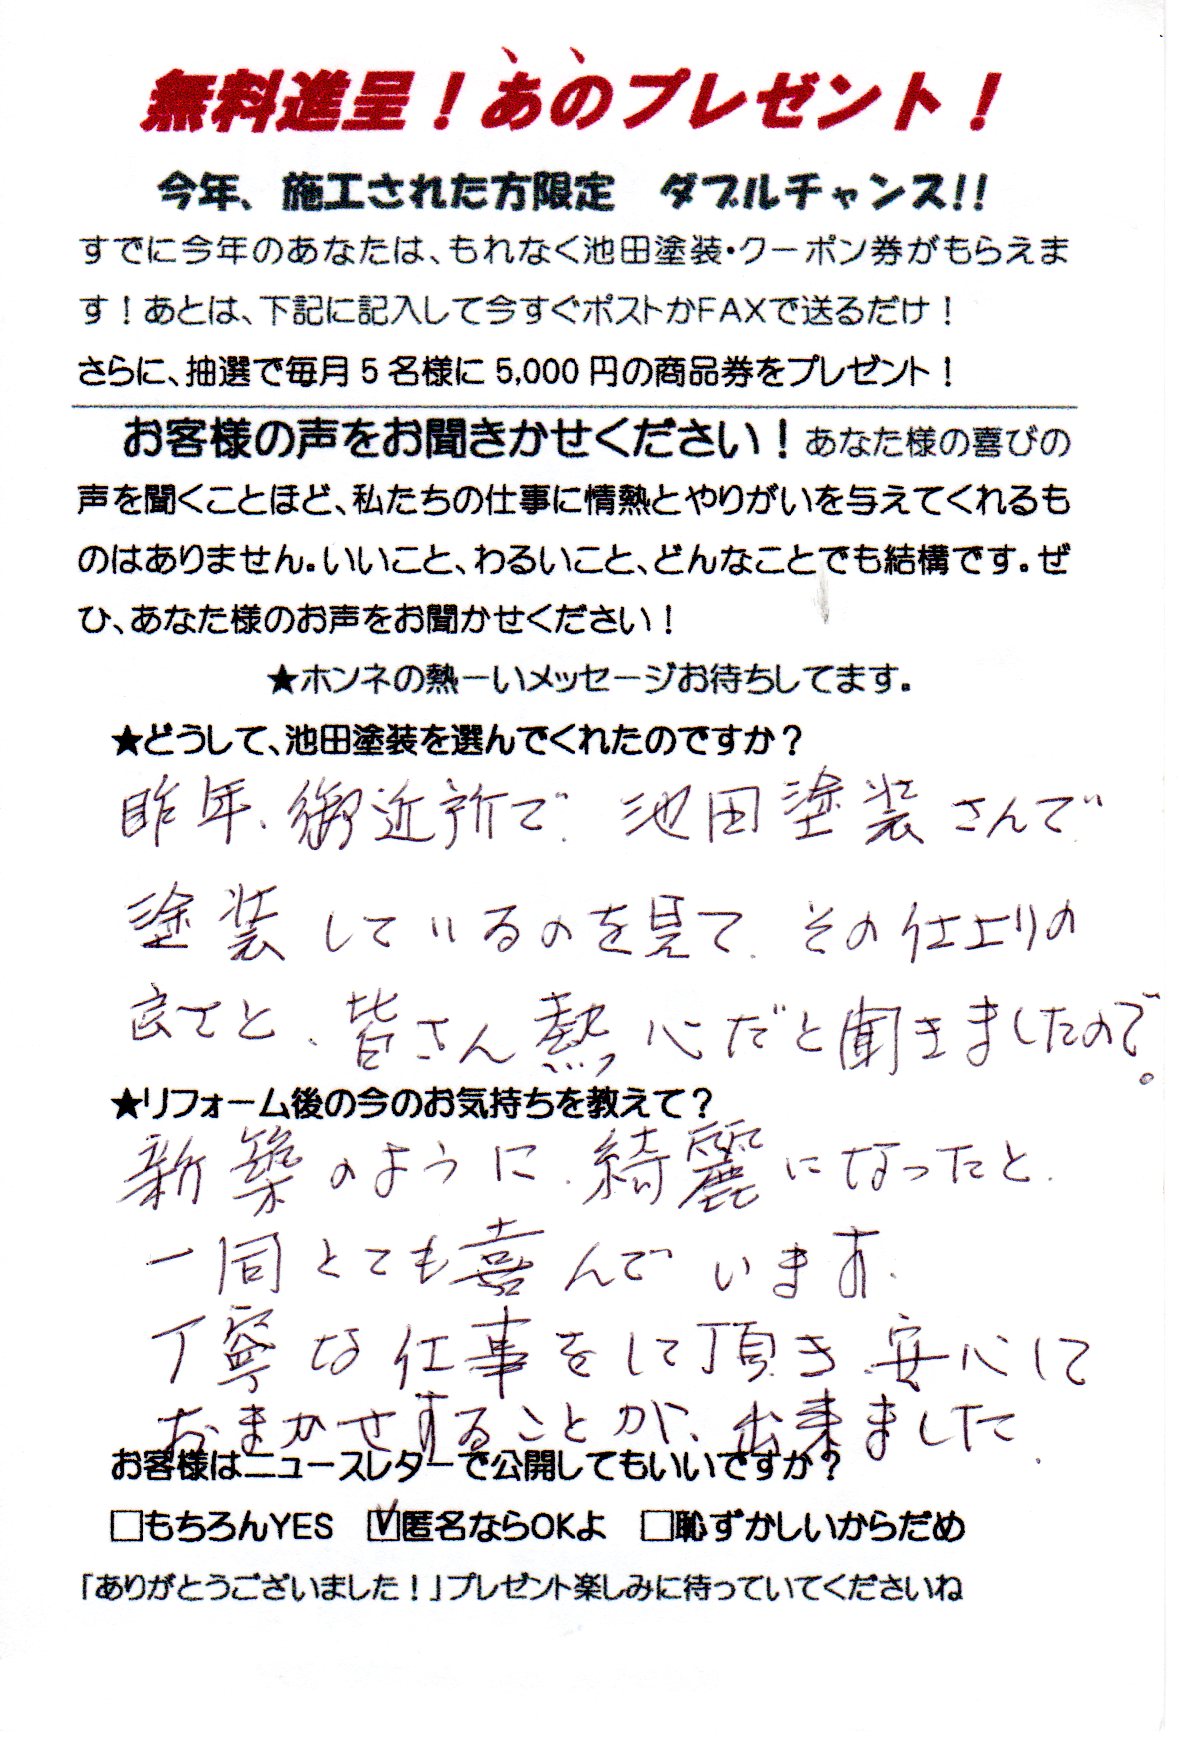 無料進呈！あのプレゼント！
今年、施工された方限定　ダブルチャンス!!
すでに今年のあなたは、もれなく池田塗装・クーポン券がもらえま
す！あとは、下記に記入して今すぐポストかFAXで送るだけ！
さらに、抽選で毎月5名様に5,000円の商品券をプレゼント！
お客様の声をお聞きかせください！あなた様の喜びの
声を聞くことほど、私たちの仕事に情熱とやりがいを与えてくれるも
のはありません。いいこと、わるいこと、どんなことでも結構です。ぜ
ひ、あなた様のお声をお聞かせください！
★ホンネの熱ーいメッセージお待ちしてます。
★どうして、池田塗装を選んでくれたのですか？
昨年、御近所で、池田塗装さんで
塗装しているのを見て、その仕上りの
良さと、皆さん熱心だと聞きましたので。
★リフォーム後の今のお気持ちを教えて？
新築のように、綺麗になったと、
一同とても喜んでいます。
丁寧な仕事をして頂き、安心して
おまかせすることが、出来ました。
お客様はニュースレターで公開してもいいですか？
□もちろんYES　☑匿名ならOKよ　□恥ずかしいからだめ
「ありがとうございました！」プレゼント楽しみに待っていてくださいね